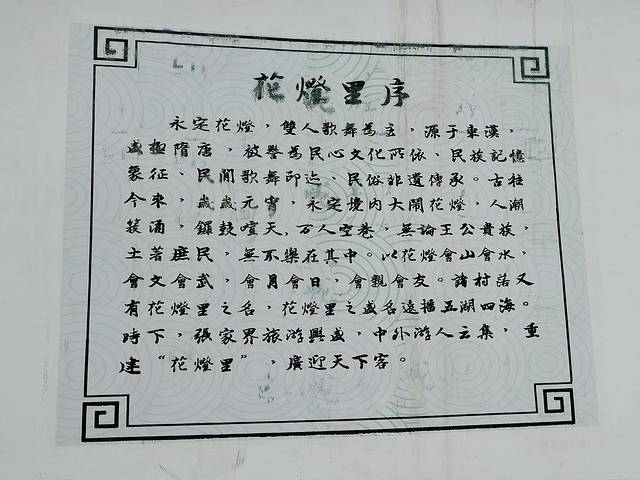 花燈里序
永定花燈，雙人歌舞為主，源于東漢，
盛極隋唐，被譽為民心文化所依、民族記憶
象征、民間歌舞印迹、民俗非遺傳承。古往
今來，歲歲元宵，永定境内大鬧花燈，人潮
簇涌，鑼鼓喧天，万人空巷，無論王公貴族，
土著庶民，無不樂在其中。以花燈會山會水，
會文會武，會月會日，會親會友。諸村落又
有花燈里之名，花燈里之盛名遠播五湖四海。
時下，張家界旅游興盛，中外游人云集，重
建“花燈里”，廣迎天下客。